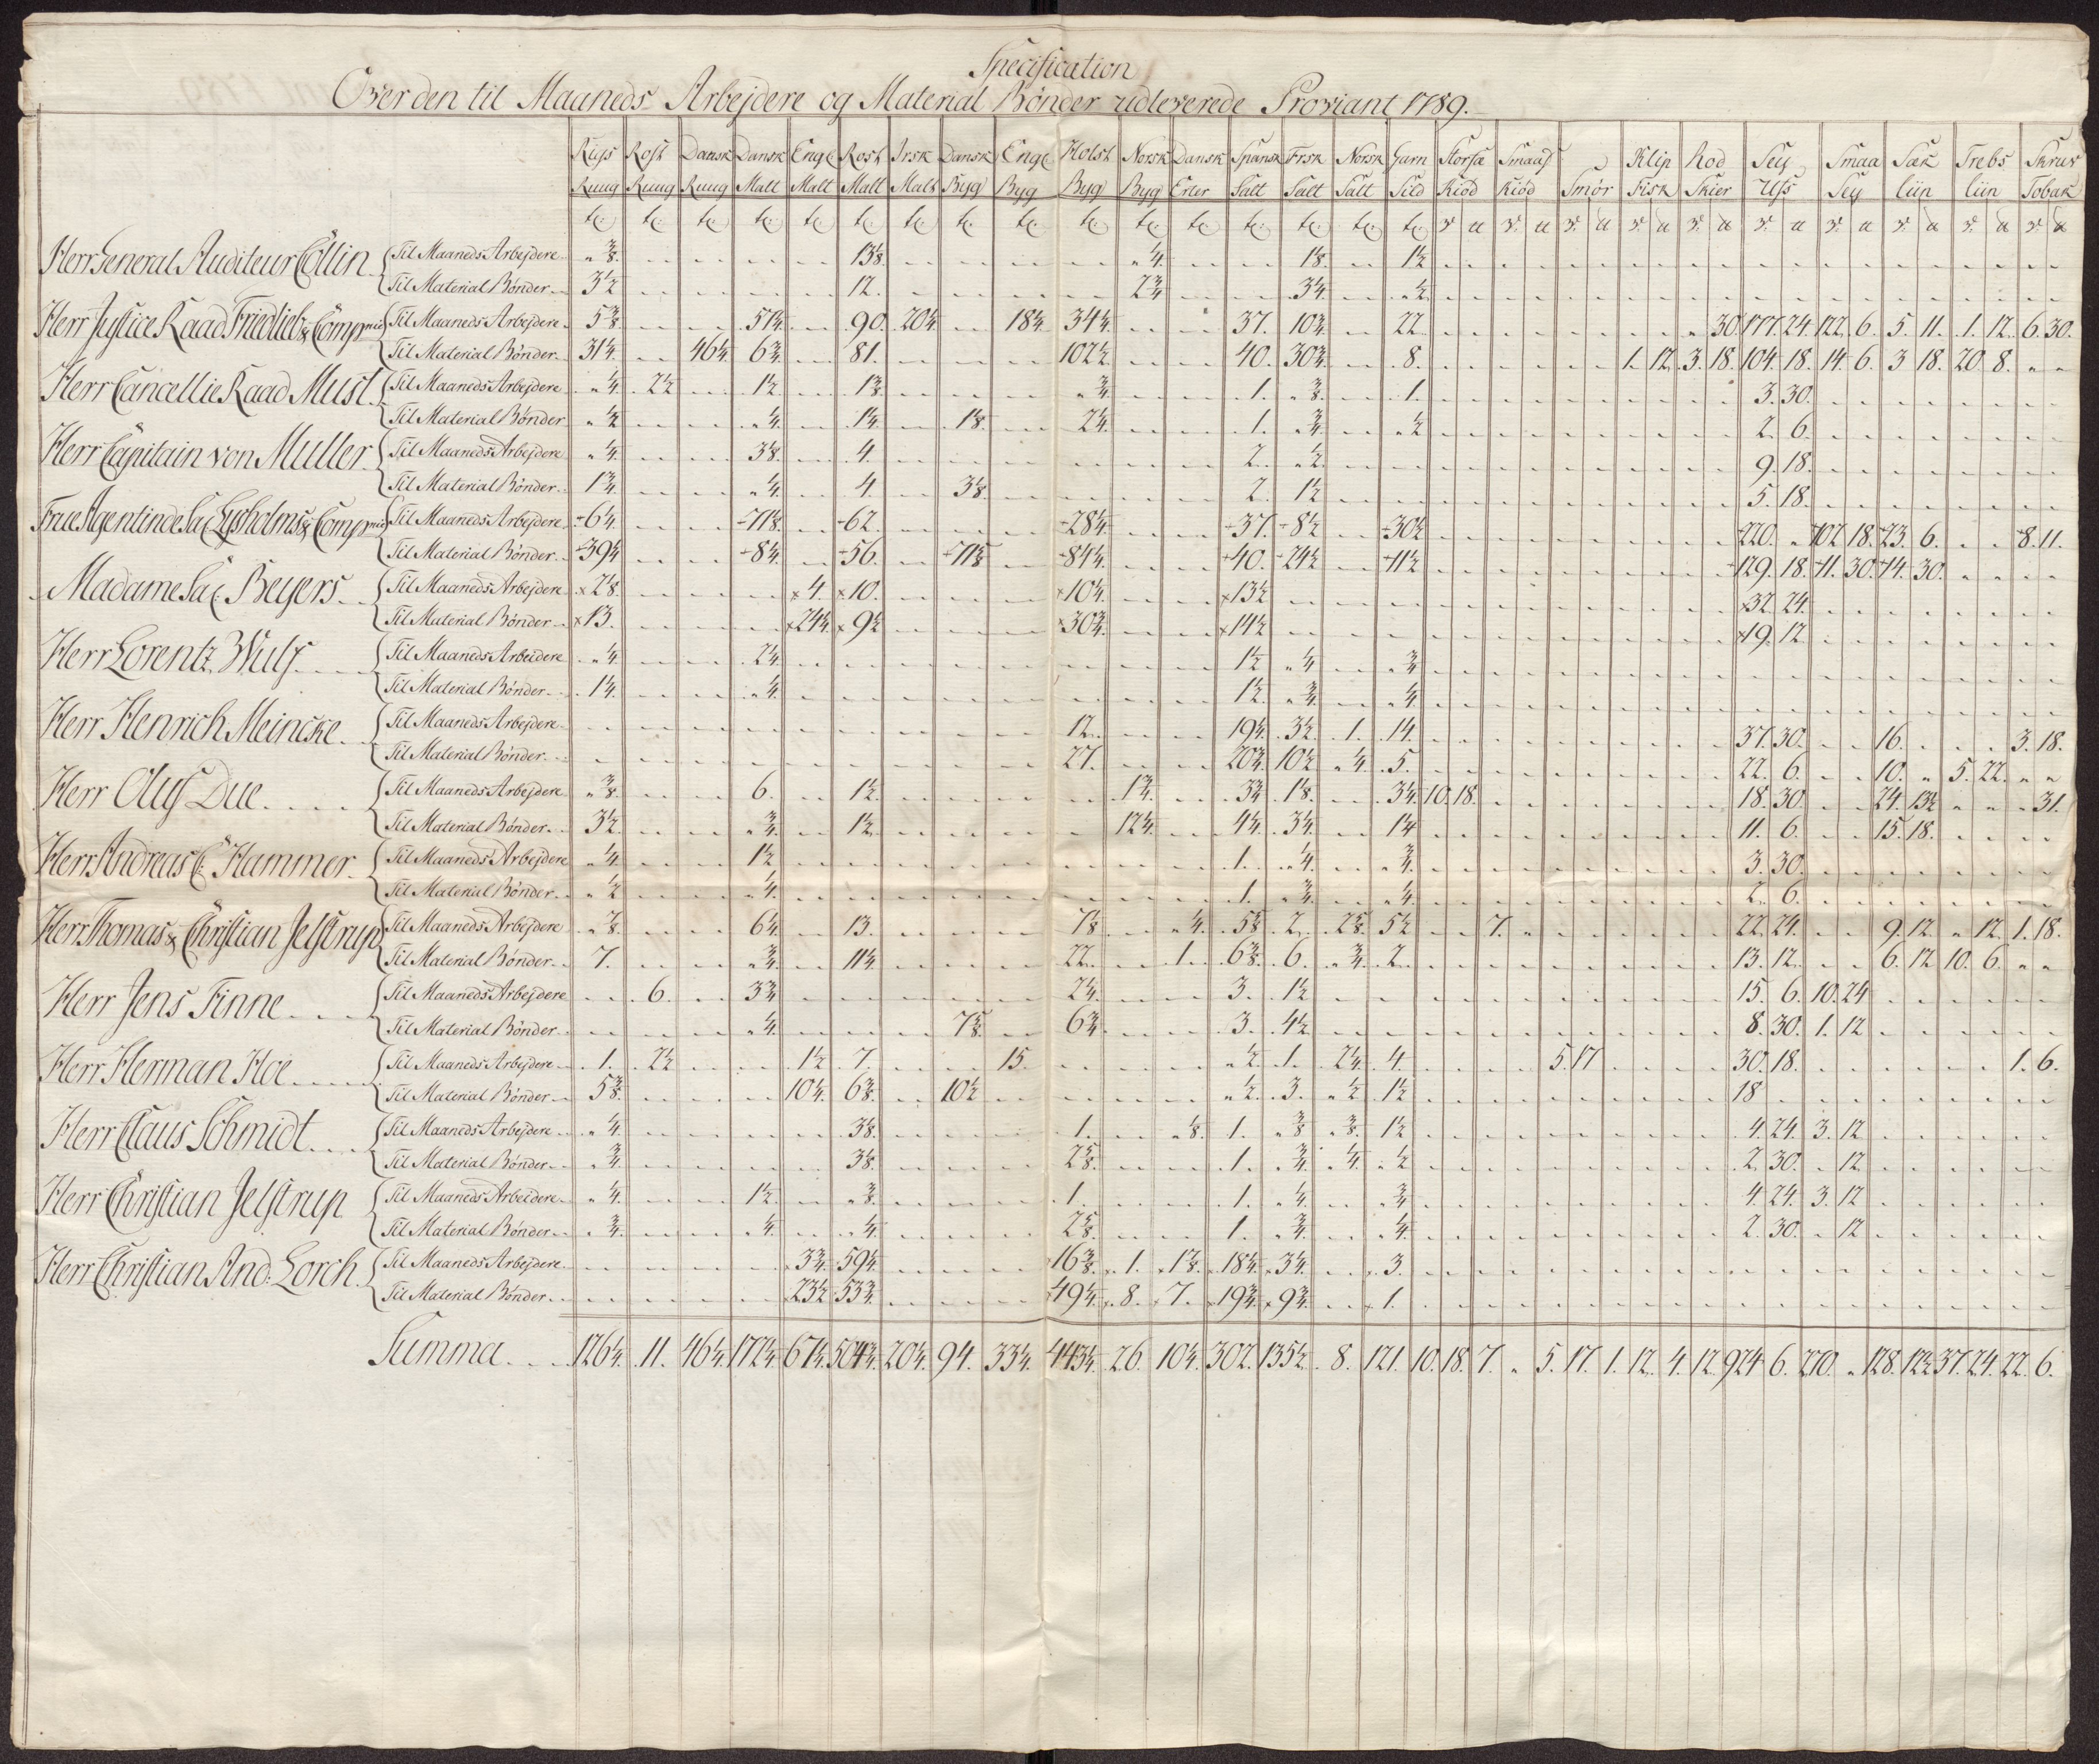 Specification
Over den til Maaneds Arbejdere og Material Bønder udleverede Proviant 1789.
Rigs Rost Dansk Dansk Engl Rost Irsk Dansk Engl Holst Norsk Dansk Spansk Frsk Norsk Garn Storfæ Smaaf Klip Rod Sey Smaa Sæk Trebs Skrav
Ruug Ruug Ruug Malt Malt Malt Malt Byg Byg Byg Byg Erter Salt Salt Salt Sild Kiød Kiød Smør Fisk Skier Ufs Sey liin liin Tobak
Herr General Auditeur Collin Til Maaneds Arbejdere " 3/8. 13 1/8. " 1/4. 1 1/8. 1 1/2
Til Material Bønder 3 1/2 12. 2 3/4 3 1/4. " 1/2
Herr Justice Raad Friedlieb & Comp Til Maaneds Arbejdere 5 3/8. 51 1/4. 90. 20 1/4. 18 1/4. 34 1/4. 37. 10 3/4. 22 " 30 177. 24. 122. 6. 5. 11. 1. 12. 6. 30.
Til Material Bønder 31 1/4. 46 1/4. 6 3/4. 81. 102 1/2. 40. 30 3/4. 8. 1. 12. 3. 18. 104. 18. 14. 6. 3 18. 20 8. " "
Herr Cancellie Raad Must Til Maaneds Arbejdere " 1/4. 2 1/2 1 1/2. 1 3/8. " 3/4. 1. " 3/8. 1. 3. 30.
Til Material Bønder " 1/2 " 1/4. 1 1/4. 1 1/8. 2 1/4. 1. " 3/4. " 1/2 2. 6.
Herr Capitain von Muller Til Maaneds Arbejdere " 1/4. 3 1/8. 4. 2. " 1/2. 9. 18.
Til Material Bønder 1 3/4. " 1/4. 4. 3 1/8. 2. 1 1/2 5. 18.
Frue Agentinde Sal Lysholms & Comp Til Maaneds Arbejdere 6 1/4. 71 1/8. 62. 28 1/4. 37. 8 1/2 30 1/2 220. " 102 18. 23. 6. 8. 11.
Til Material Bønder 39 1/4 8 1/4. 56. 11 5/8 84 1/4. 40. 24 1/2 11 1/2 129. 18. 11. 30. 14. 30.
Madame Sal Beyers Til Maaneds Arbejdere × 2 1/8. × 4. × 10. × 10 1/4. × 13 1/2 × 32. 24.
Til Material Bønder × 13. × 24 1/4. × 9 1/2 × 30 3/4. × 14 1/2 × 19. 12.
Herr Lorentz Wulf Til Maaneds Arbeidere " 1/4. 2 1/4. 1 1/2 " 1/4. " 3/4
Til Material Bønder 1 1/4. " 1/4. 1 1/2. " 3/4. " 1/4.
Herr Henrich Meincke Til Maaneds Arbejdere 12. 19 1/4. 3 1/2. 1. 14. 37. 30. 16. 3. 18.
Til Material Bønder 27. 20 3/4. 10 1/2 " 1/4. 5. 22. 6. 10. " 5. 22. " "
Herr Oluf Due Til Maaneds Arbejdere " 3/8. 6. 1 1/2. 1 3/4. 3 3/4 1 1/8. 3 1/4. 10. 18. 18. 30. 24. 13 1/2 " " " 31.
Til Material Bønder 3 1/2. " 3/4. 1 1/2. 12 1/4. 4 1/4. 3 1/4. 1 1/4 11. 6. 15. 18.
Herr Andreas C: Hammer Til Maaneds Arbejdere " 1/4. 1 1/2 1. " 1/4. " 3/4. 3. 30.
Til Material Bønder " 1/2 " 1/4. 1. " 3/4. " 1/4. 2. 6.
Herr Thomas & Christian Jelstrup Til Maaneds Arbejdere " 7/8. 6 1/4. 13. 7 1/8. " 1/4. 5 5/8. 2. 2 5/8. 5 1/2 7. " 22. 24. 9. 12 " 12. 1. 18.
Til Material Bønder 7. " 3/4. 11 3/4. 22. 1. 6 3/8. 6. " 3/4. 2. 13. 12. 6. 12 10. 6. " "
Herr Jens Finne Til Maaneds Arbejdere 6. 3 3/4 2 1/4. 3. 1 1/2 15. 6. 10. 24
Til Material Bønder " 1/4. 7 5/8. 6 3/4. 3. 4 1/2 8. 30. 1. 12
Herr Herman Hoe Til Maaneds Arbejdere 1. 2 1/2 1 1/2 7. 15. " 1/2. 1. 2 1/4. 4. 5. 17 30. 18. 1. 6.
Til Material Bønder 5 3/8. 10 1/4. 6 3/8. 10 1/2 " 1/2. 3. " 1/2 1 1/2 18
Herr Claus Schmidt Til Maaneds Arbejdere " 1/4. 3 1/8. 1. " 1/8. 1. " 3/8 " 3/8. 1 1/2 4. 24. 3. 12
Til Material Bønder " 3/4. 3 1/8. 2 5/8. 1. " 3/4. " 1/4. " 1/2 2. 30. " 12.
Herr Christian Jelstrup Til Maaneds Arbeidere " 1/4. 1 1/2. " 3/8. 1. 1. " 1/4. " 3/4 4. 24. 3. 12
Til Material Bønder " 3/4. " 1/4. " 1/4. 2 5/8. 1. " 3/4. " 1/4. 2. 30. " 12
Herr Christian And: Lorch Til Maaneds Arbejdere 3 3/4. 59 1/4. 16 3/8. 1. 1 7/8. 18 1/4. 3 1/4. 3.
Til Material Bønder 23 1/2 53 3/4. 49 1/4. 8. 7. 19 3/4. 9 3/4. 1.
Summa 126 1/4. 11. 46 1/4. 172 1/4. 67 1/4. 504 3/4. 20 1/4. 94. 33 1/4. 443 1/4. 26. 10 1/4. 302. 135 1/2. 8. 121. 10. 18. 7. " 5. 17. 1. 12. 4. 12. 924 6. 270. " 128. 12 1/2 37. 24. 22. 6.